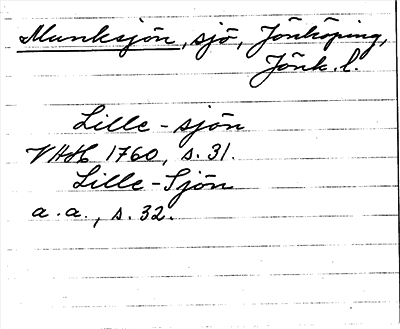 Munksjön, sjö, Jönköping,
Jönk. l.
Lille-sjön
VHAH 1760, s. 31.
Lille-Sjön
a. a., s. 32.